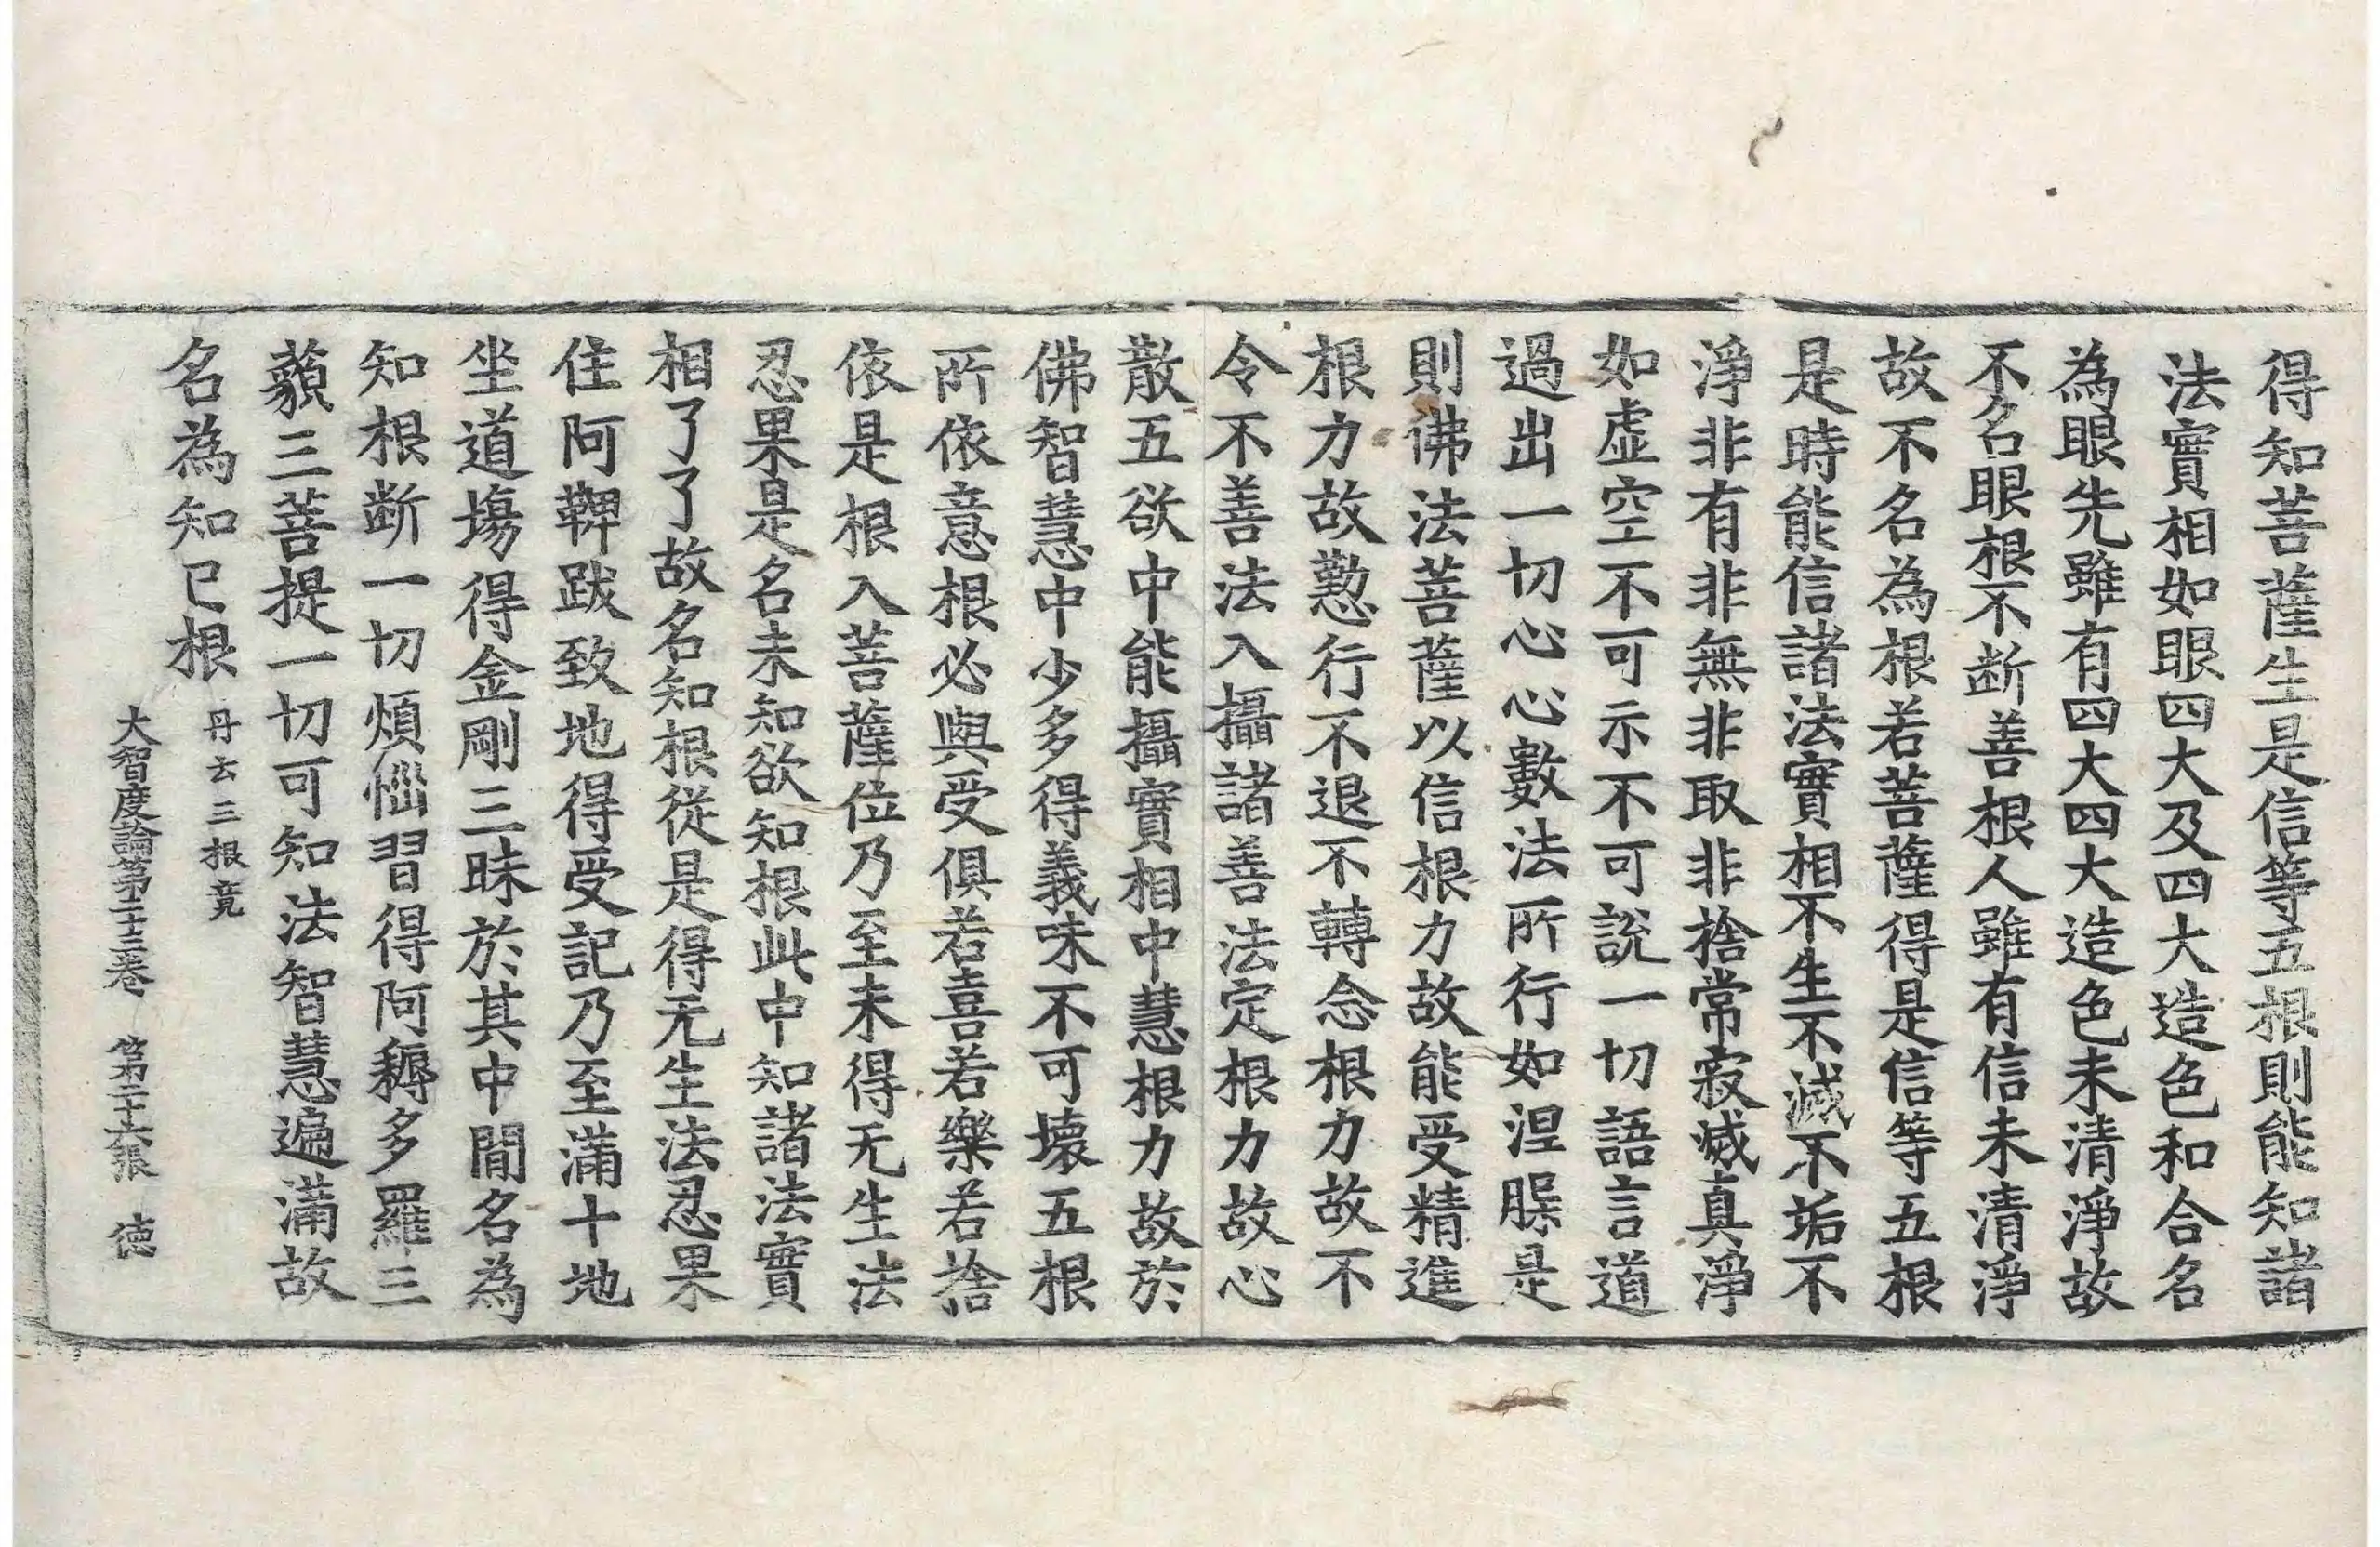 得知菩薩生是信等五根則能知諸
法實相如眼四大及四大造色和合名
為眼先雖有四大四大造色未清淨故
不名眼根不断善根人雖有信未清淨
故不名為根若菩薩得是信等五根
是時能信諸法實相不生不滅不垢不
淨非有非無非取非捨常寂滅真淨
如虛空不可示不可說一切語言道
過出一切心心數法所行如涅槃是
則佛法菩薩以信根力故能受精進
根力故懃行不退不轉念根力故不
令不善法入攝諸善法定根力故心
散五欲中能攝實相中慧根力故於
佛智慧中少多得義味不可壞五根
所依意根必與受俱若喜若樂若捨
依是根入菩薩位乃至未得无生法
忍果是名未知欲知根此中知諸法實
相了了故名知根從是得无生法忍果
住阿鞞跋致地得受記乃至滿十地
坐道場得金剛三昧於其中間名為
知根断一切煩惱習得阿耨多羅三
藐三菩提一切可知法智慧遍滿故
名為知已根 丹云三根竟
大智度論第二十三卷 第二十六張 德